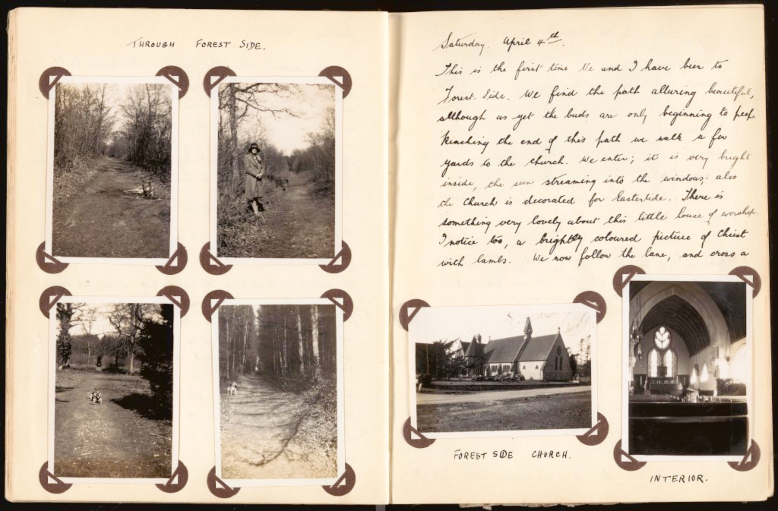 THROUGH FOREST SIDE.
Saturday. April 4th.
This is the first time Ve and I have been to
Forest Side. We find the path alluring beautiful,
although as yet the buds are only beginning to peep.
Reaching the end of this path we walk a few
yards to the church. We enter; it is very bright
inside, the sun streaming into the windows; also
the Church is decorated for Eastertide. There is
something very lovely about this little house of worship.
I notice too, a brightly coloured picture of Christ
with lambs. We now follow the lane, and cross a
FOREST SIDE CHURCH.
INTERIOR.